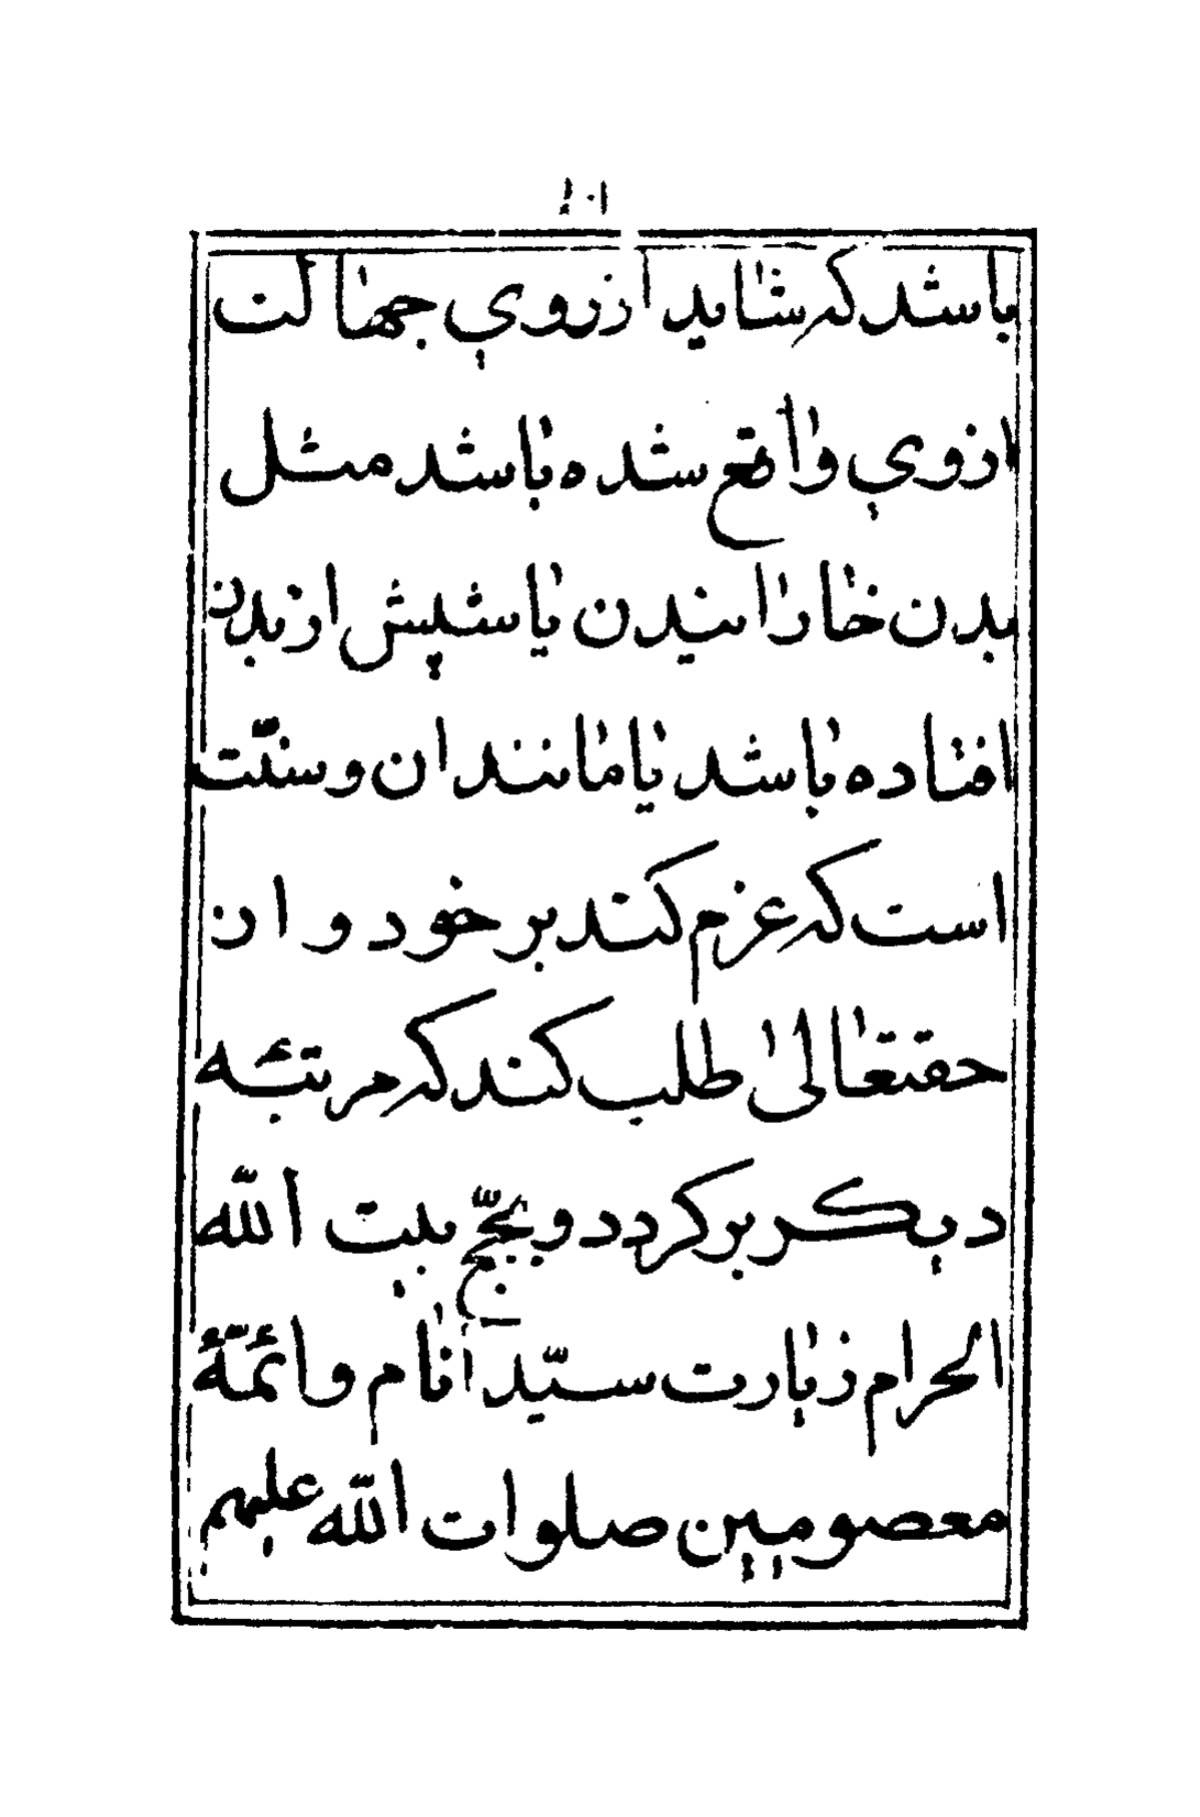 باشد که شاید از روی جهالت
ازوی واقع شده باشد مثل
بدن خارانیدن یا شپش از بدن
افتاده باشد یا مانند ان و سنّت
است که عزم کند بر خود و ان
حقتعالیٰ طلب کند که مرتبئه
دیکر برکردد و بحجّ بیت الله
الحرام زیارت سیّد أنام وائمّهٔ
معصومین صلوات الله علیهم